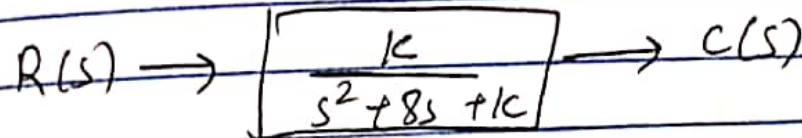 R(s) → K / s² + 8s + K → C(s)